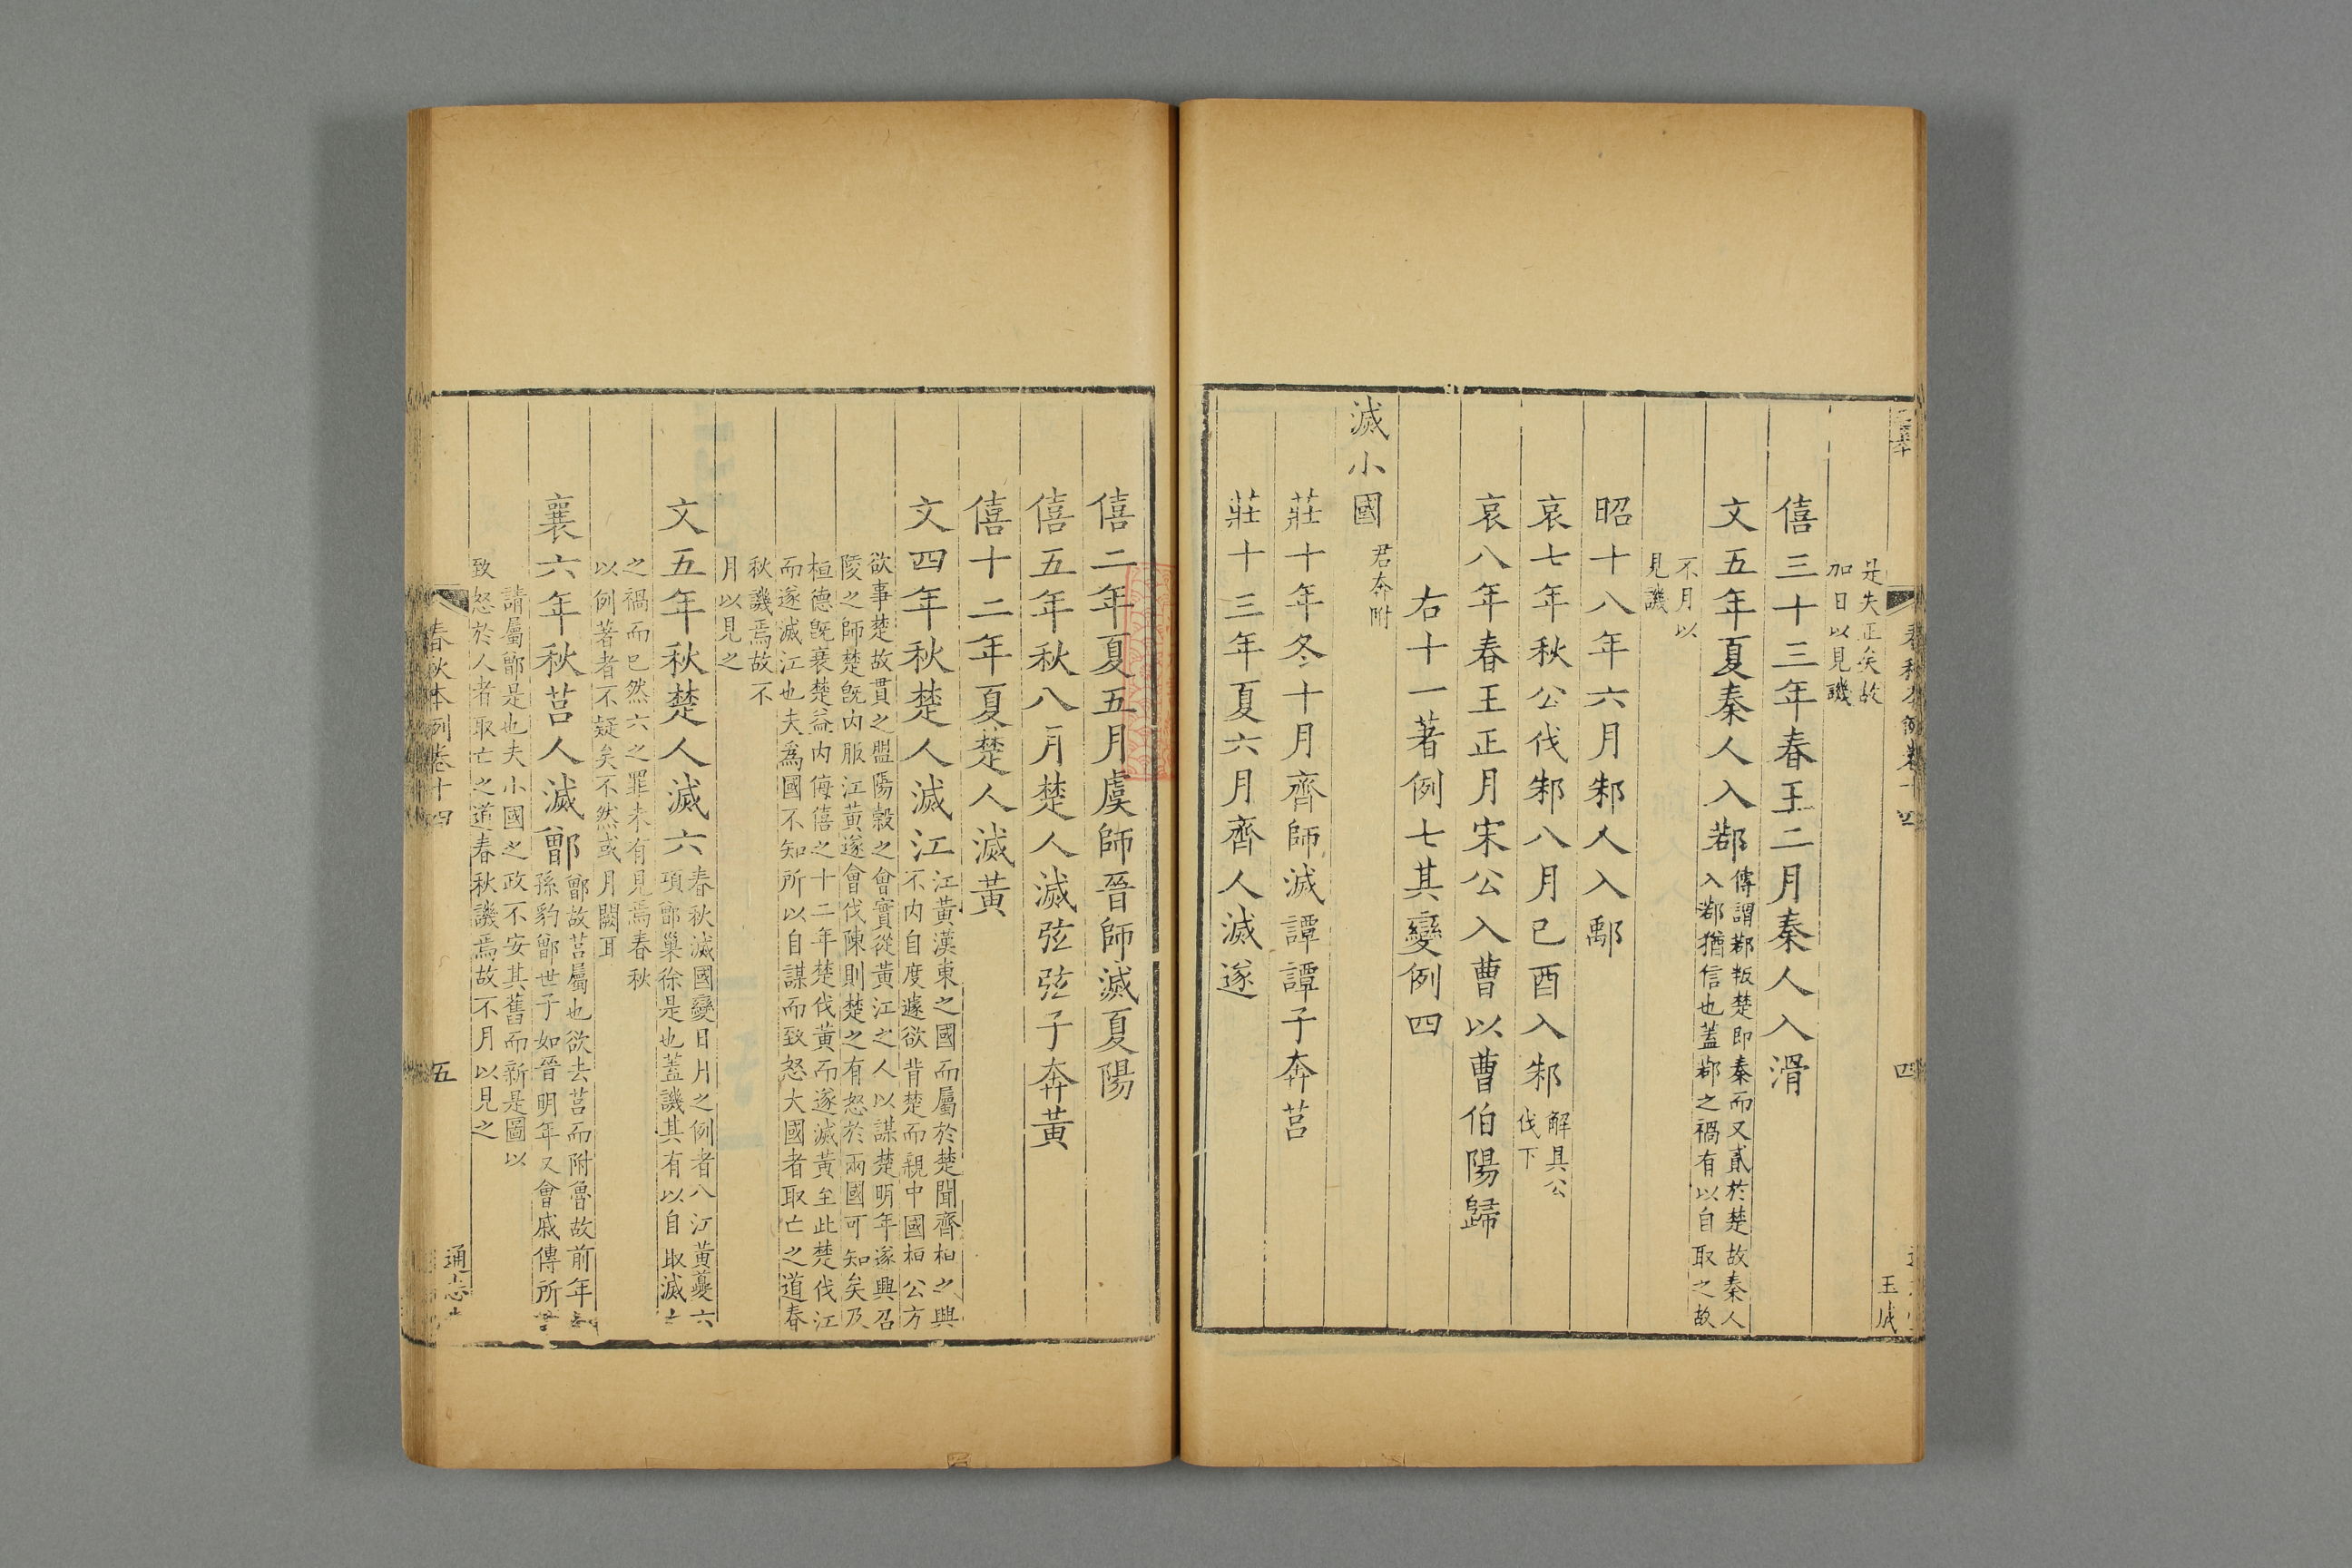 是失正矣故
加日以見譏
僖三十三年春王二月秦人入滑
文五年夏秦人入鄀
傳謂鄀叛楚即秦而又貳於楚故秦人
入鄀猶信也蓋鄀之禍有以自取之故
不月以
見譏
昭十八年六月邾人入鄅
哀七年秋公伐邾八月己酉入邾
解具公
伐下
哀八年春王正月宋公入曹以曹伯陽歸
右十一著例七其變例四
滅小國
君奔附
莊十年冬十月齊師滅譚譚子奔莒
莊十三年夏六月齊人滅遂
四
王成
僖二年夏五月虞師晉師滅夏陽
僖五年秋八月楚人滅弦弦子奔黃
僖十二年夏楚人滅黃
文四年秋楚人滅江
江黃漢東之國而屬於楚聞齊桓之興
不內自度遽欲背楚而親中國桓公方
欲事楚故貫之盟陽穀之會實從黃江之人以謀楚明年遂興召
陵之師楚旣內服江黃遂會伐陳則楚之有怒於兩國可知矣乃
桓德旣衰楚益內侮僖之十二年楚伐黃而遂滅黃至此楚伐江
而遂滅江也夫爲國不知所以自謀而致怒大國者取亡之道春
秋譏焉故不
月以見之
文五年秋楚人滅六
春秋滅國變日月之例者八江黃夔六
項鄫巢徐是也蓋譏其有以自取滅亡
之禍而已然六之罪未有見焉春秋
以例著者不疑矣不然或月闕耳
襄六年秋莒人滅鄫
鄫故莒屬也欲去莒而附魯故前年
孫豹鄫世子如晉明年又會戚傳所
請屬鄫是也夫小國之政不安其舊而新是圖以
致怒於人者取亡之道春秋譏焉故不月以見之
春秋本例卷十四
五
通志